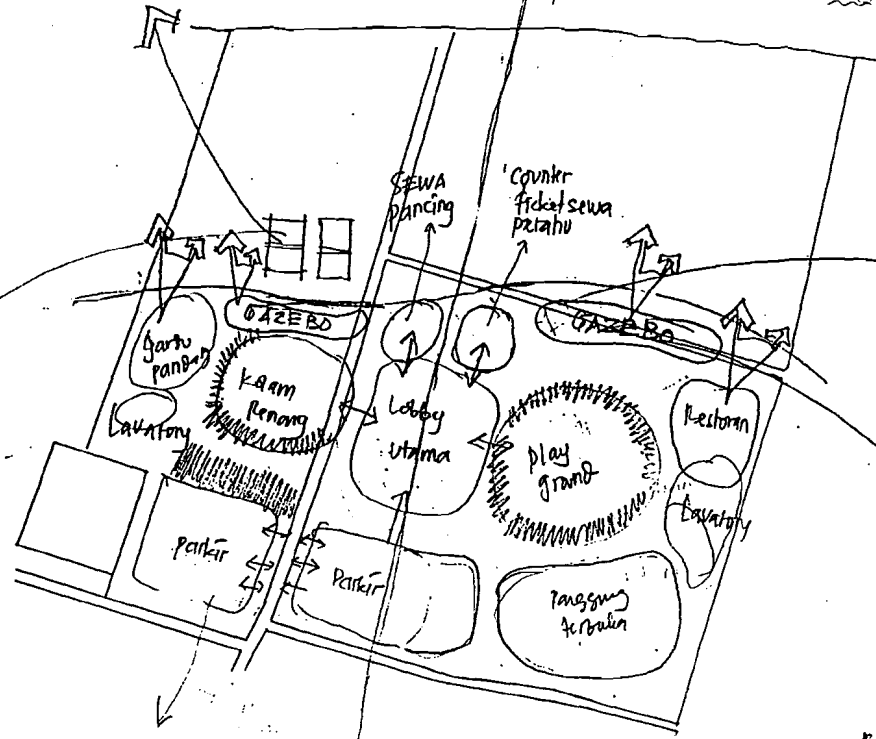 SEWA
pancing
Counter
ticket sewa
perahu
GAZEBO
GAZEBO
Gardu
pandang
Kolam
Renang
Lavatory
Lobby
utama
play
ground
Restoran
Lavatory
parkir
Parkir
Panggung
terbuka